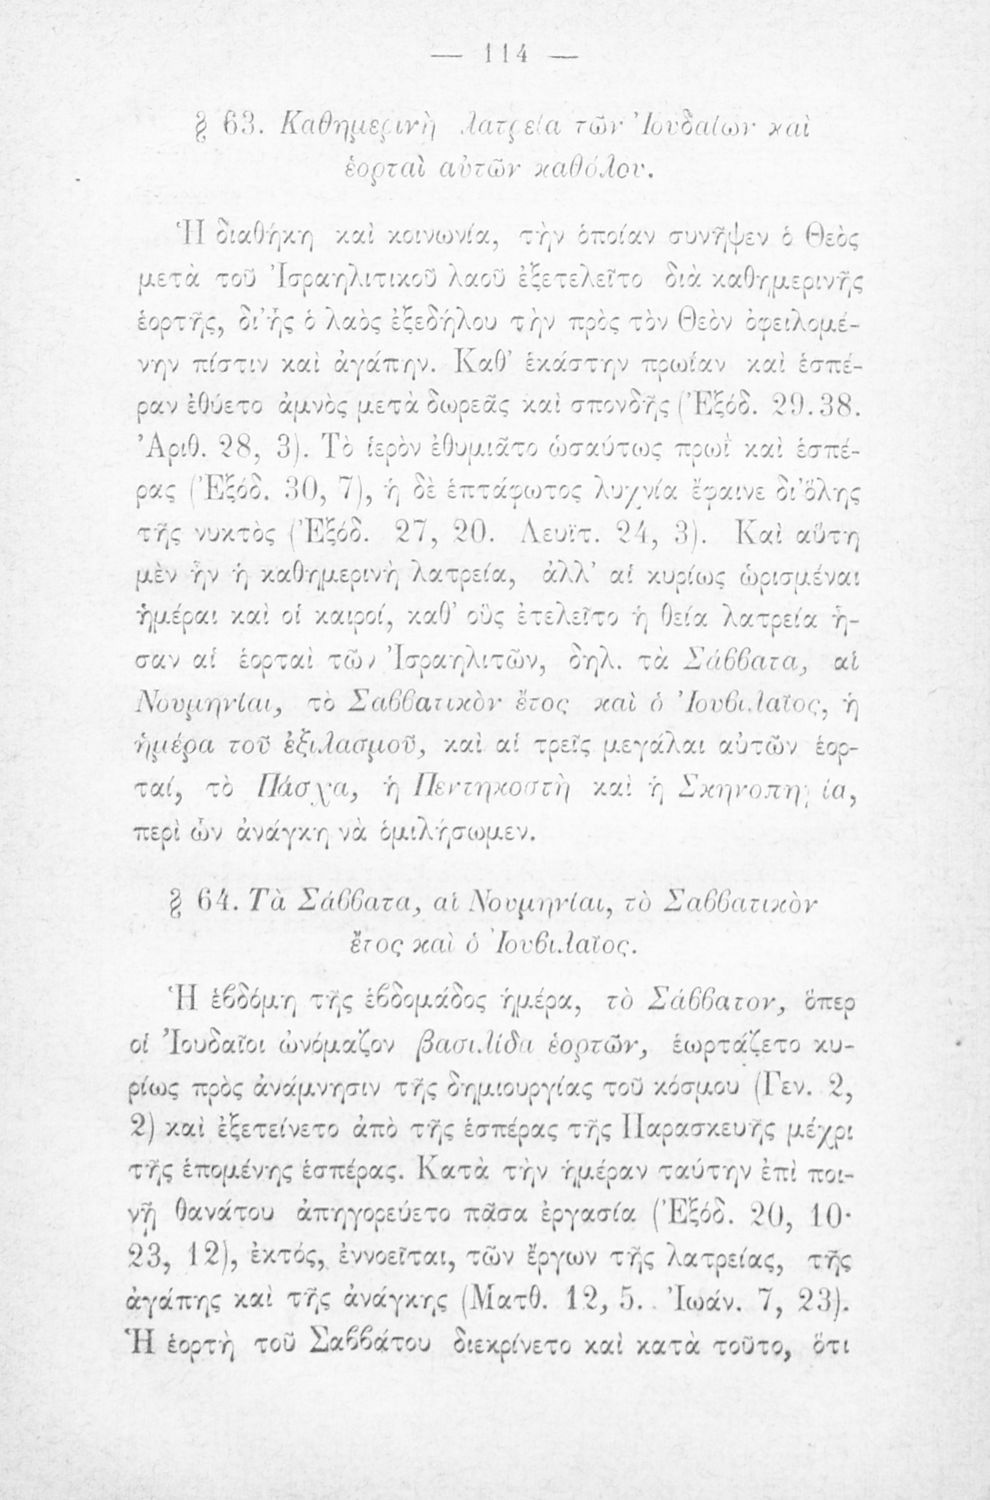 — 114 —
§ 63. Καθημερινὴ λατρεία τῶν Ἰουδαίων καὶ
ἑορταὶ αὐτῶν καθόλου.
Ἡ διαθήκη καὶ κοινωνία, τὴν ὁποίαν συνῆψεν ὁ Θεὸς
μετὰ τοῦ Ἰσραηλιτικοῦ λαοῦ ἐξετελεῖτο διὰ καθημερινῆς
ἑορτῆς, δι' ἧς ὁ λαὸς ἐξεδήλου τὴν πρὸς τὸν Θεὸν ὀφειλομέ-
νην πίστιν καὶ ἀγάπην. Καθ' ἑκάστην πρωίαν καὶ ἑσπέ-
ραν ἐθύετο ἀμνὸς μετὰ δωρεᾶς καὶ σπονδῆς (Ἐξόδ. 29.38.
Ἀριθ. 28, 3). Τὸ ἱερὸν ἐθυμιᾶτο ὡσαύτως πρωῒ καὶ ἑσπέ-
ρας (Ἐξόδ. 30, 7), ἡ δὲ ἑπτάφωτος λυχνία ἔφαινε δι' ὅλης
τῆς νυκτὸς (Ἐξόδ. 27, 20. Λευϊτ. 24, 3). Καὶ αὕτη
μὲν ἦν ἡ καθημερινὴ λατρεία, ἀλλ' αἱ κυρίως ὡρισμέναι
ἡμέραι καὶ οἱ καιροί, καθ' οὓς ἐτελεῖτο ἡ θεία λατρεία ἦ-
σαν αἱ ἑορταὶ τῶν Ἰσραηλιτῶν, δηλ. τὰ Σάββατα, αἱ
Νουμηνίαι, τὸ Σαββατικὸν ἔτος καὶ ὁ Ἰουβιλαῖος, ἡ
ἡμέρα τοῦ ἐξιλασμοῦ, καὶ αἱ τρεῖς μεγάλαι αὐτῶν ἑορ-
ταί, τὸ Πάσχα, ἡ Πεντηκοστὴ καὶ ἡ Σκηνοπηγία,
περὶ ὧν ἀνάγκη νὰ ὁμιλήσωμεν.
§ 64. Τὰ Σάββατα, αἱ Νουμηνίαι, τὸ Σαββατικὸν
ἔτος καὶ ὁ Ἰουβιλαῖος.
Ἡ ἑβδόμη τῆς ἑβδομάδος ἡμέρα, τὸ Σάββατον, ὅπερ
οἱ Ἰουδαῖοι ὠνόμαζον βασιλίδα ἑορτῶν, ἑωρτάζετο κυ-
ρίως πρὸς ἀνάμνησιν τῆς δημιουργίας τοῦ κόσμου (Γεν. 2,
2) καὶ ἐξετείνετο ἀπὸ τῆς ἑσπέρας τῆς Παρασκευῆς μέχρι
τῆς ἑπομένης ἑσπέρας. Κατὰ τὴν ἡμέραν ταύτην ἐπὶ ποι-
νῇ θανάτου ἀπηγορεύετο πᾶσα ἐργασία (Ἐξόδ. 20, 10·
23, 12), ἐκτός, ἐννοεῖται, τῶν ἔργων τῆς λατρείας, τῆς
ἀγάπης καὶ τῆς ἀνάγκης (Ματθ. 12, 5. Ἰωάν. 7, 23).
Ἡ ἑορτὴ τοῦ Σαββάτου διεκρίνετο καὶ κατὰ τοῦτο, ὅτι